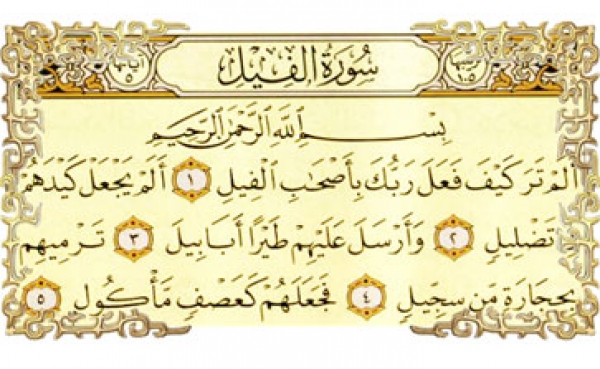 ترتيبها ١٠٥
سُورَةُ الفِيلِ
آياتها ٥
بِسْمِ اللَّهِ الرَّحْمَٰنِ الرَّحِيمِ
أَلَمْ تَرَ كَيْفَ فَعَلَ رَبُّكَ بِأَصْحَٰبِ الْفِيلِ ١ أَلَمْ يَجْعَلْ كَيْدَهُمْ
تَضْلِيلٍ ٢ وَأَرْسَلَ عَلَيْهِمْ طَيْرًا أَبَابِيلَ ٣ تَرْمِيهِم
بِحِجَارَةٍ مِّن سِجِّيلٍ ٤ فَجَعَلَهُمْ كَعَصْفٍ مَّأْكُولٍ ٥